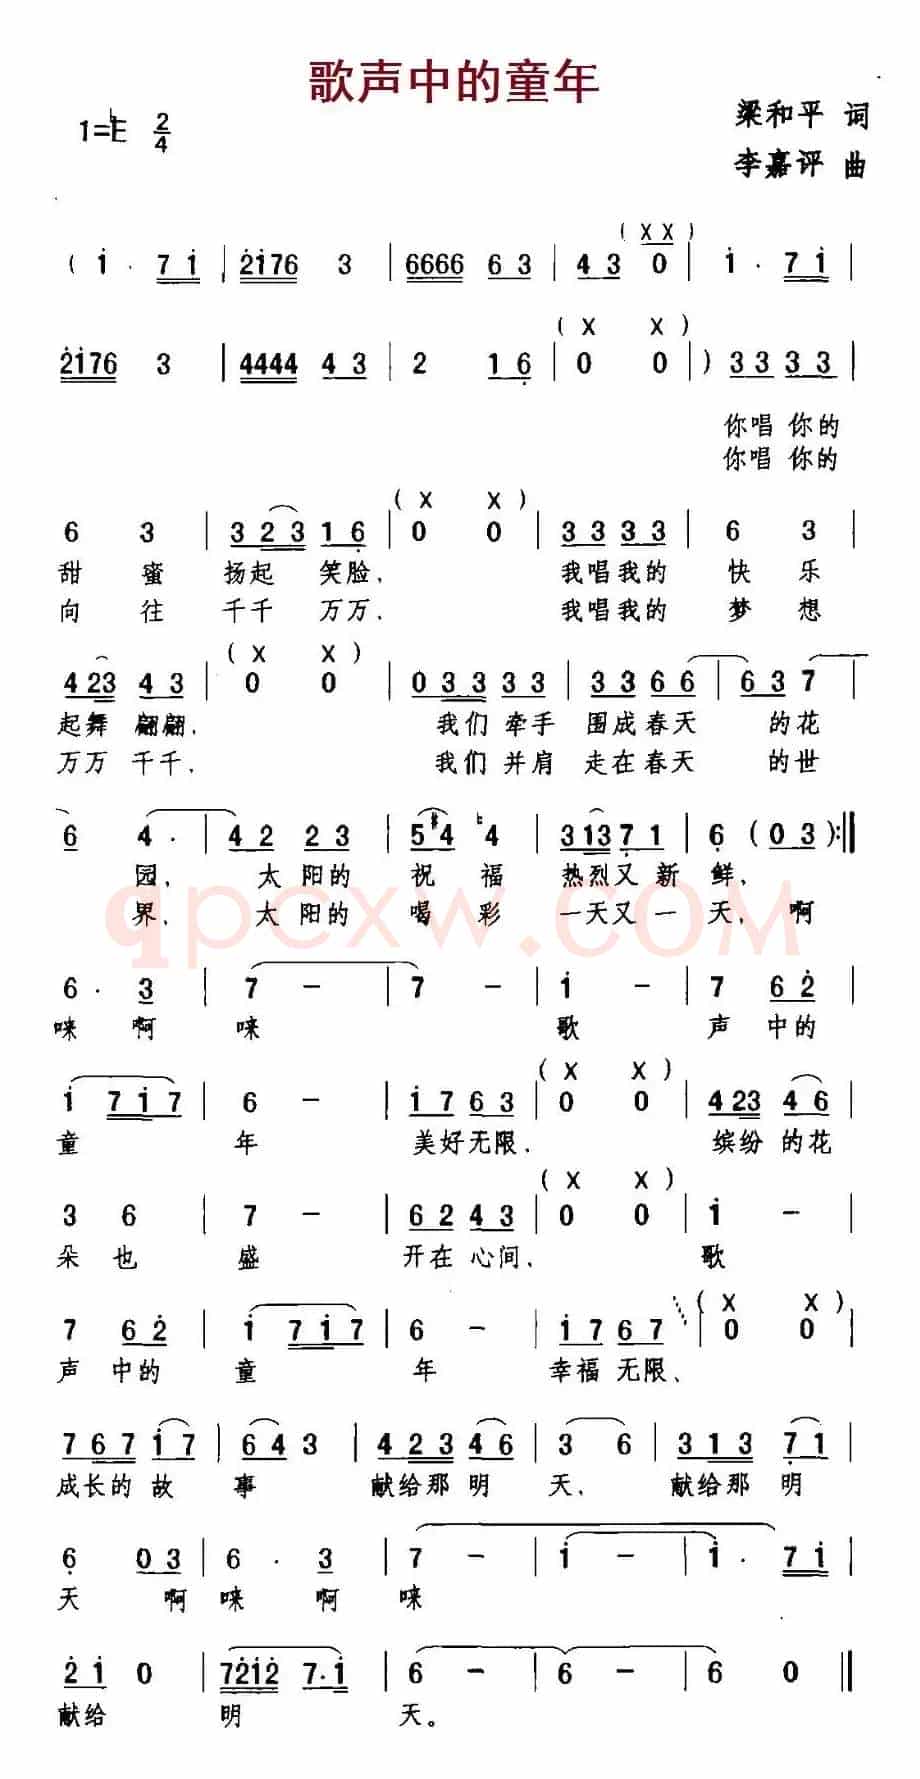 歌声中的童年
1=E 2/4
梁和平 词
李嘉评 曲
(XX)
( i· 7i | 2i76 3 | 6666 63 | 43 0 | i· 7i |
(X X)
2i76 3 | 4444 43 | 2 16 | 0 0 | ) 33 33 |
你唱 你的
你唱 你的
(X X)
6 3 | 323 16 | 0 0 | 33 33 | 6 3 |
甜 蜜 扬起 笑脸, 我唱我的 快 乐
向 往 千千 万万, 我唱我的 梦 想
(X X)
423 43 | 0 0 | 033 33 | 33 66 | 63 7 |
起舞 翩翩, 我们 牵手 围成春天 的花
万万 千千, 我们 并肩 走在春天 的世
6 4· | 42 23 | 5#4 ♮4 | 313 71 | 6 (03):‖
园, 太阳的 祝福 热烈又新鲜,
界, 太阳的 喝彩 一天又一天, 啊
qpcxw.COM
6· 3 | 7 – | 7 – | i – | 7 62 |
唻 啊 唻 歌 声 中的
(X X)
i 7i7 | 6 – | i7 63 | 0 0 | 423 46 |
童 年 美好无限, 缤纷 的花
(X X)
3 6 | 7 – | 62 43 | 0 0 | i – |
朵 也 盛 开在 心间, 歌
(X X)
7 62 | i 7i7 | 6 – | i7 67 | 0 0 |
声 中的 童 年 幸福 无限、
767 i7 | 64 3 | 423 46 | 3 6 | 313 71 |
成长的 故 事 献给那 明 天, 献给那 明
6 03 | 6· 3 | 7 – | i – | i· 7i |
天 啊 唻 啊 唻
2i 0 | 72i2 7·i | 6 – | 6 – | 6 0 ‖
献给 明 天。